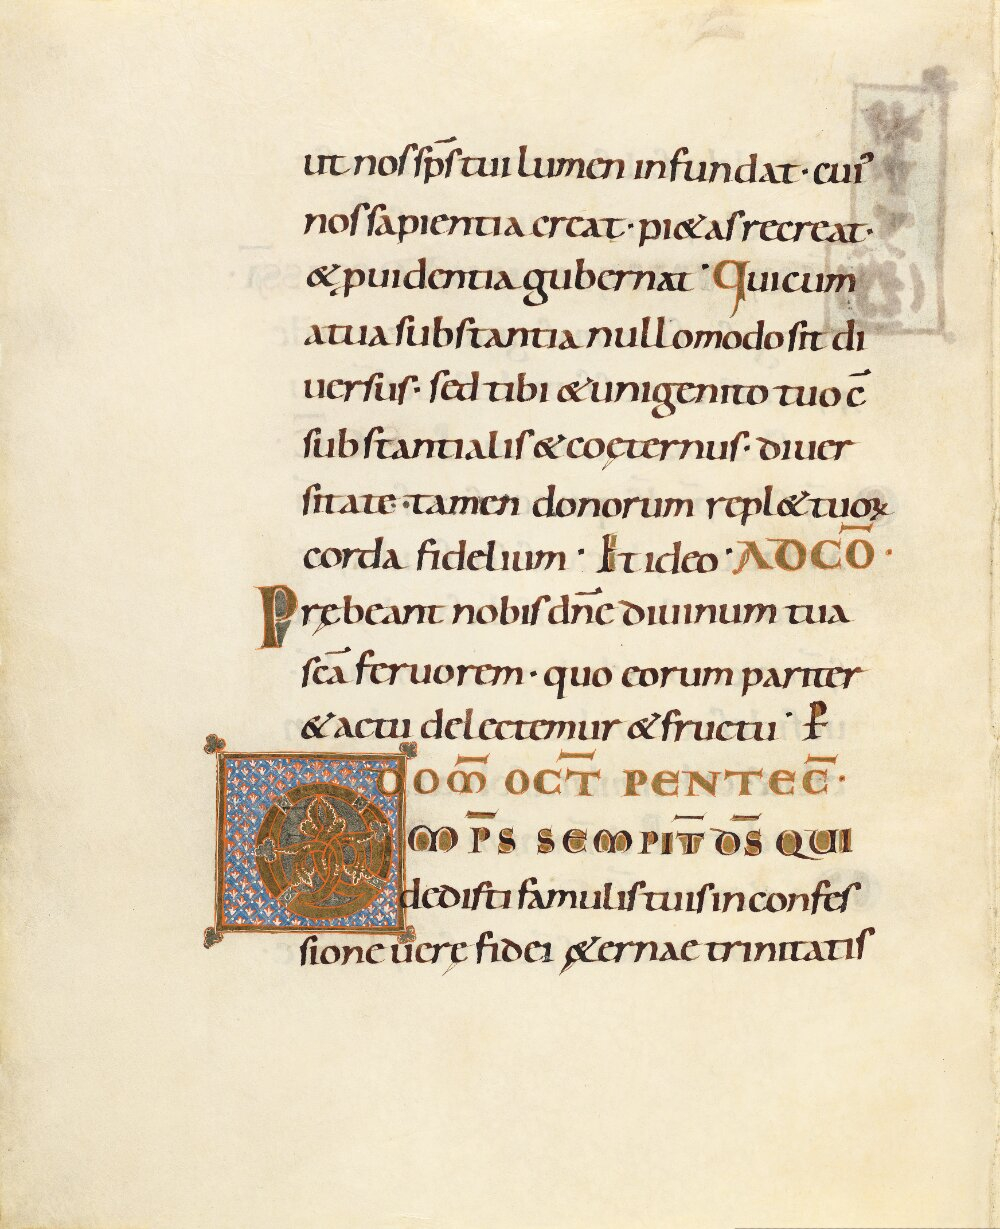 ut nos sp̄s tui lumen infundat· cuiꝰ
nos sapientia creat· pi&as recreat·
& puidentia gubernat· Qui cum
a tua substantia nullomodo sit di
uersus· sed tibi & unigenito tuo c̄
substantialis & coęternus· diuer
sitate· tamen donorum repl& tuoꝝ
corda fidelium· Et ideo· AD CŌ·
Prębeant nobis dn̄e diuinum tua
sc̄a feruorem· quo eorum pariter
& actu delectemur & fructu· P
DOM̄ OCT̄ PENTEC̄·
OM̄PS SEMPIT̄ DS̄ QUI
dedisti famulis tuis in confes
sione uerę fidei ę&ernae trinitatis